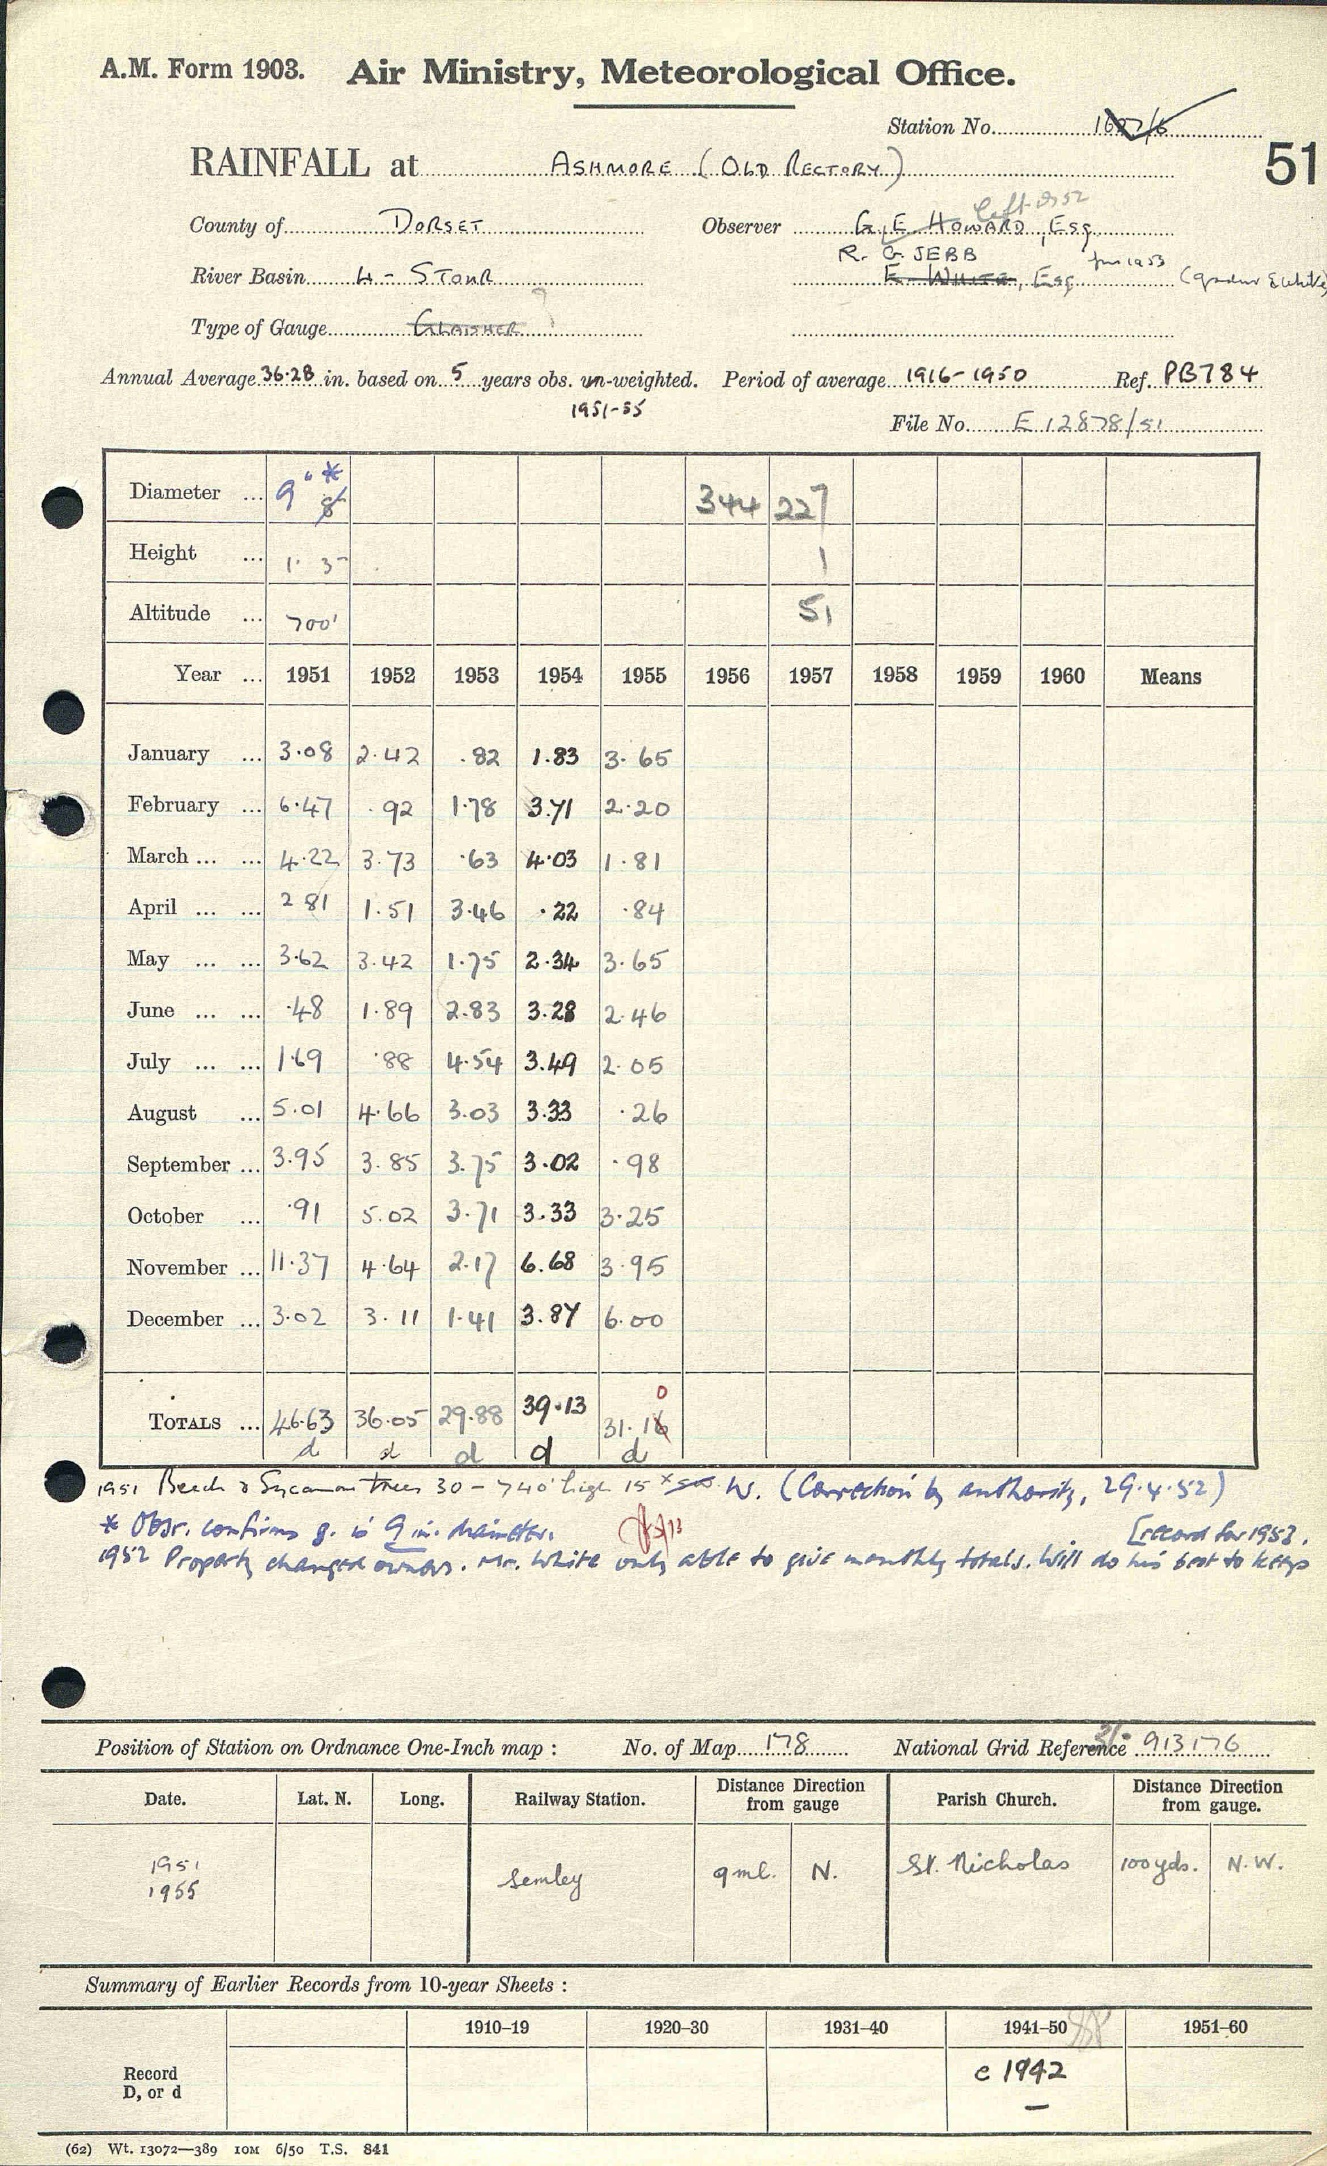 A.M. Form 1903. Air Ministry, Meteorological Office.
Station No.
51
RAINFALL at ASHMORE (OLD RECTORY)
left 1952
County of DORSET Observer G. E. HOWARD, Esq
R. G. JEBB
River Basin 4 - STOUR E. WHITE, Esq Jun 1953
Type of Gauge GLAISHER ?
Annual Average 36.28 in. based on 5 years obs. un-weighted. Period of average 1916-1950 Ref. PB784
1951-55
File No. E 12878/51
Diameter ... 9" * 8 344 227
Height ... 1' 3" 1
Altitude ... 700' 51
Year ... 1951 1952 1953 1954 1955 1956 1957 1958 1959 1960 Means
January ... 3.08 2.42 .82 1.83 3.65
February ... 6.47 .92 1.78 3.71 2.20
March ... ... 4.22 3.73 .63 4.03 1.81
April ... ... 2 81 1.51 3.46 .22 .84
May ... ... 3.62 3.42 1.75 2.34 3.65
June ... ... .48 1.89 2.83 3.28 2.46
July ... ... 1.69 .88 4.54 3.49 2.05
August ... 5.01 4.66 3.03 3.33 .26
September ... 3.95 3.85 3.75 3.02 .98
October ... .91 5.02 3.71 3.33 3.25
November ... 11.37 4.64 2.17 6.68 3.95
December ... 3.02 3.11 1.41 3.87 6.00
0
TOTALS ... 46.63 36.05 29.88 39.13 31.16
d d d d d
1951 Beech & Sycamore trees 30 - 40' high 15 W. (Correction by authority, 29.4.52)
* Obsr. confirms g. is 9 in. diameter. [record for 1953.
1952 Property changed owners. Mr. White only able to give monthly totals. Will do his best to keep
Position of Station on Ordnance One-Inch map : No. of Map 178 National Grid Reference 31- 913176
Date. Lat. N. Long. Railway Station. Distance Direction from gauge Parish Church. Distance Direction from gauge.
1951 Semley 9 ml. N. St. Nicholas 100 yds. N.W.
1955
Summary of Earlier Records from 10-year Sheets :
1910–19 1920–30 1931–40 1941–50 1951–60
Record
D, or d
c 1942
—
(62) Wt. 13072—389 10M 6/50 T.S. 841